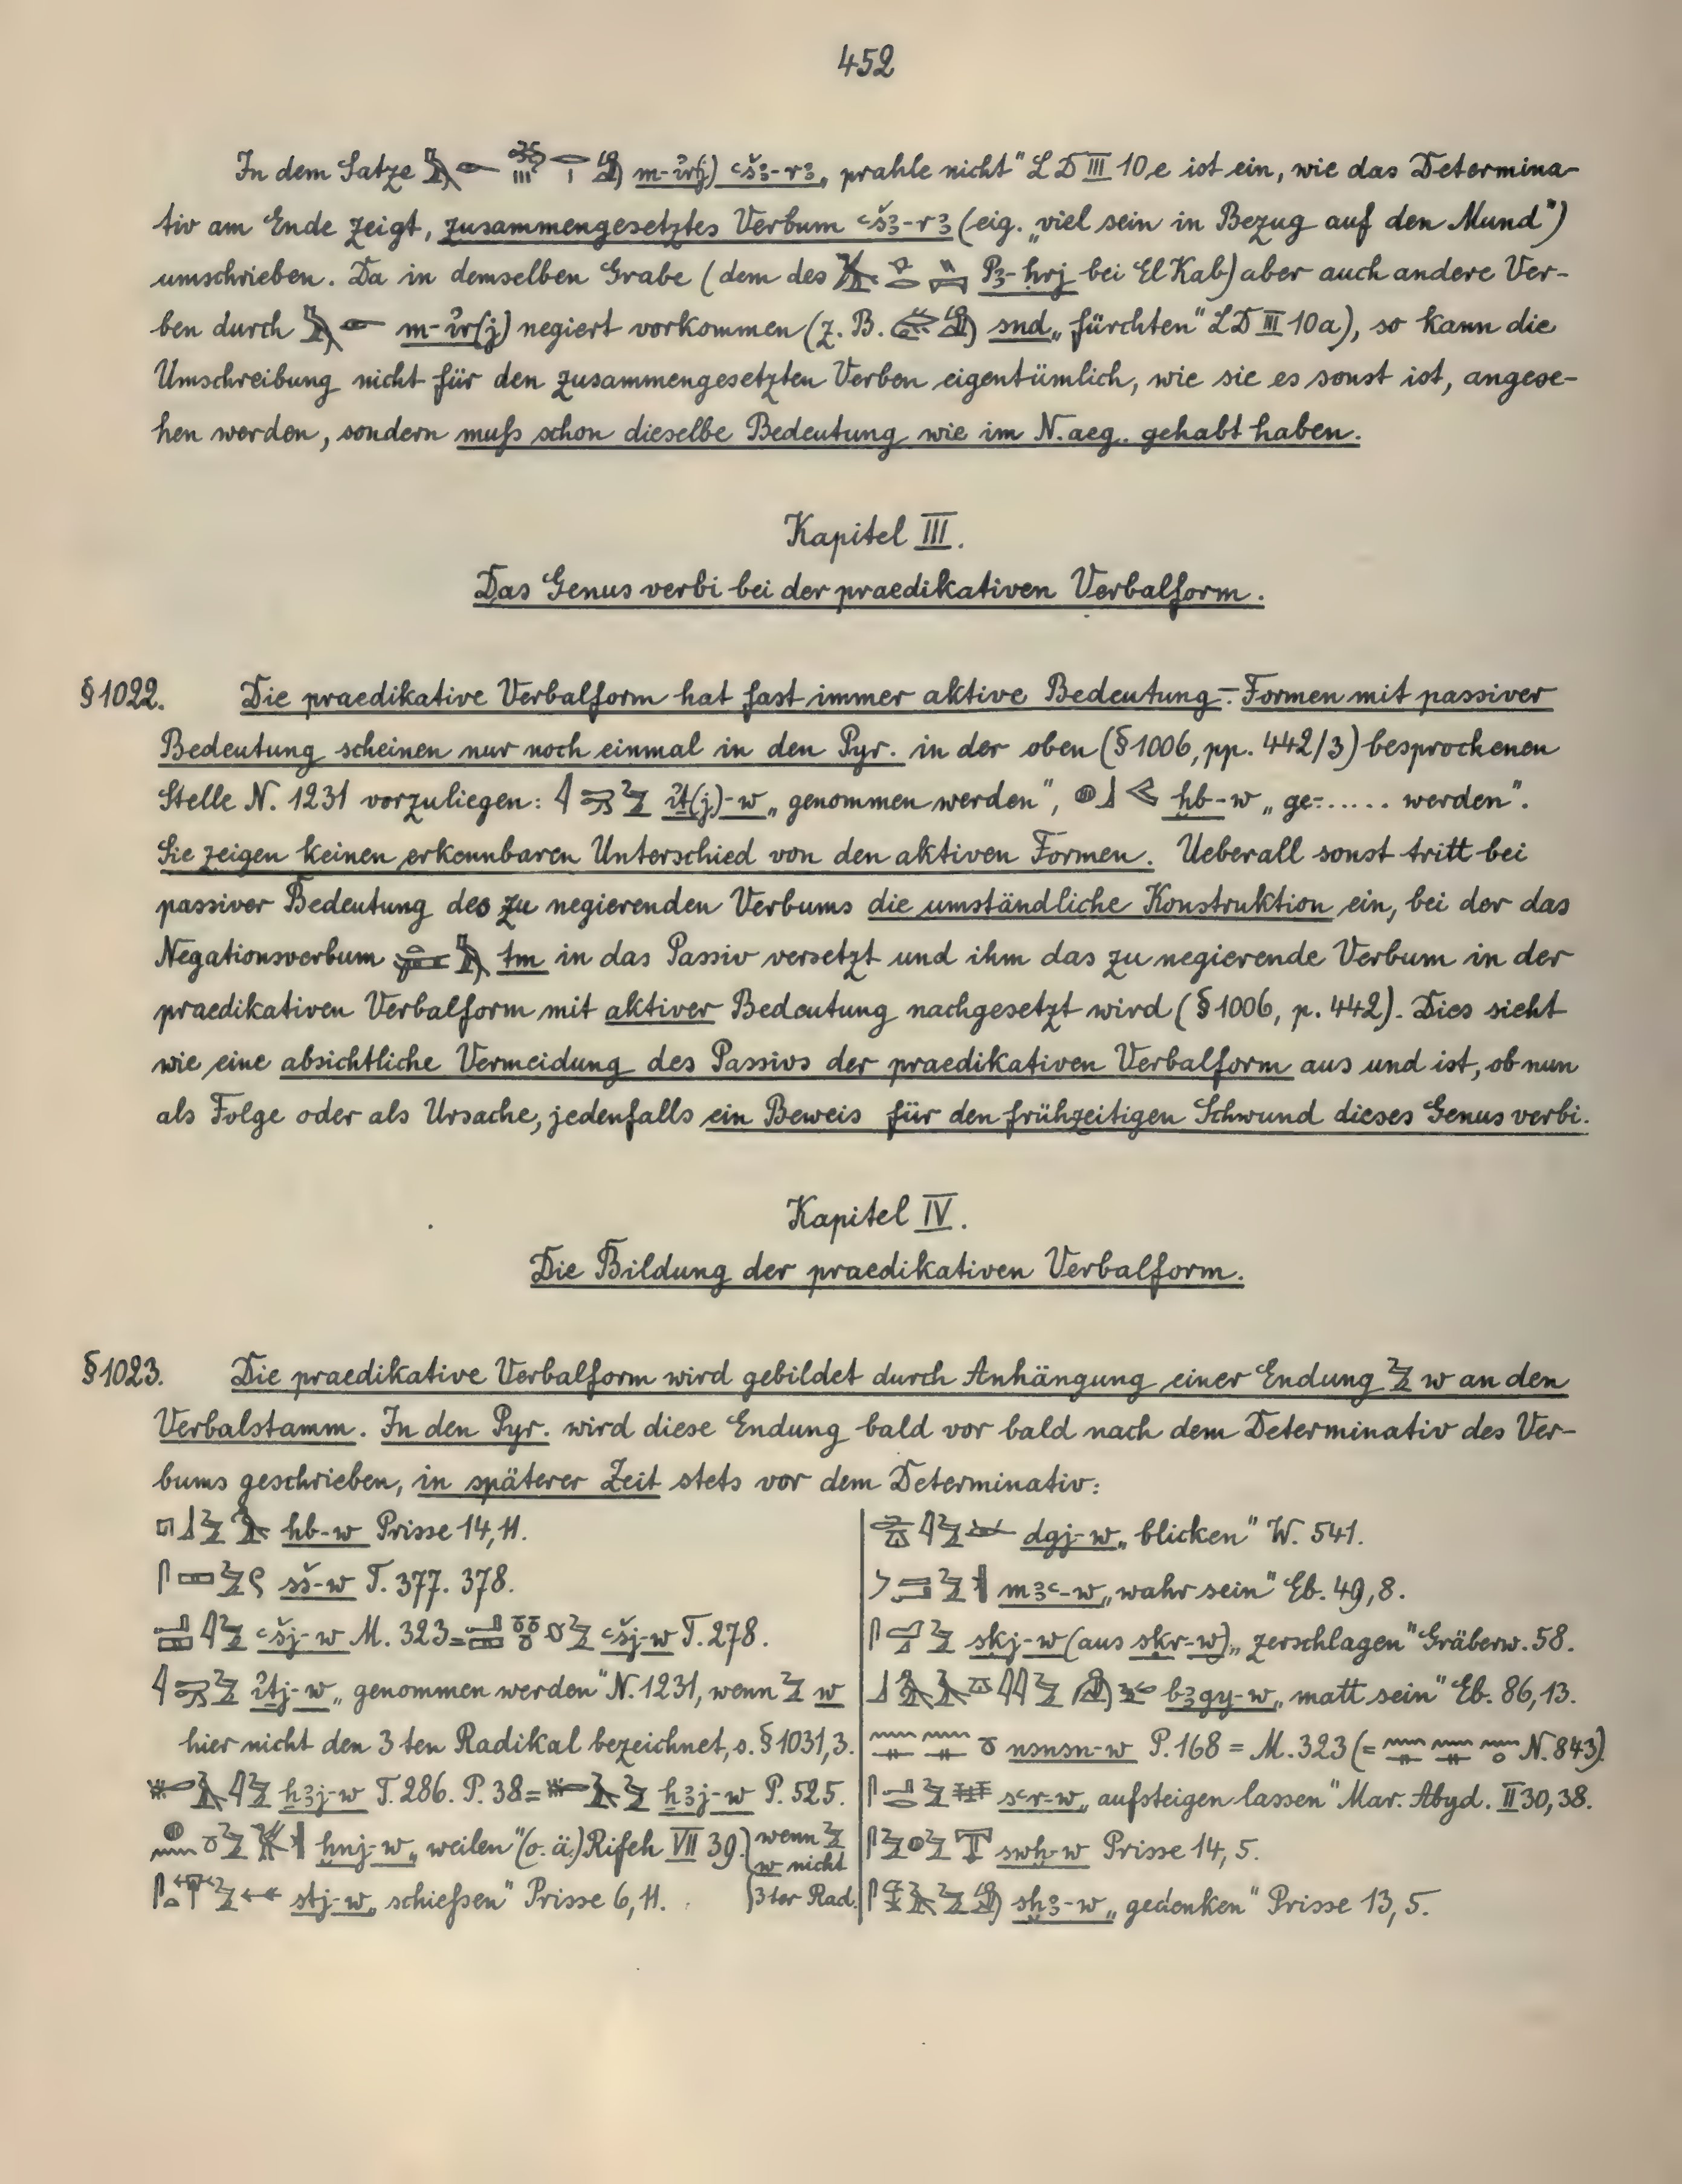 452
In dem Satze m-ı͗r(j) ꜥšꜣ-rꜣ „prahle nicht" LD III 10e ist ein, wie das Determina-
tiv am Ende zeigt, zusammengesetztes Verbum ꜥšꜣ-rꜣ (eig. „viel sein in Bezug auf den Mund")
umschrieben. Da in demselben Grabe (dem des Pꜣ-ḥrj bei El Kab) aber auch andere Ver-
ben durch m-ı͗r(j) negiert vorkommen (z. B. snd „fürchten" LD III 10a), so kann die
Umschreibung nicht für den zusammengesetzten Verben eigentümlich, wie sie es sonst ist, angese-
hen werden, sondern muß schon dieselbe Bedeutung wie im N.aeg. gehabt haben.
Kapitel III.
Das Genus verbi bei der praedikativen Verbalform.
§ 1022. Die praedikative Verbalform hat fast immer aktive Bedeutung. - Formen mit passiver
Bedeutung scheinen nur noch einmal in den Pyr. in der oben (§ 1006, pp. 442/3) besprochenen
Stelle N. 1231 vorzuliegen: ı͗ṯ(j)-w „genommen werden", ḫb-w „ge-...... werden".
Sie zeigen keinen erkennbaren Unterschied von den aktiven Formen. Ueberall sonst tritt bei
passiver Bedeutung des zu negierenden Verbums die umständliche Konstruktion ein, bei der das
Negationsverbum tm in das Passiv versetzt und ihm das zu negierende Verbum in der
praedikativen Verbalform mit aktiver Bedeutung nachgesetzt wird (§ 1006, p. 442). Dies sieht
wie eine absichtliche Vermeidung des Passivs der praedikativen Verbalform aus und ist, ob nun
als Folge oder als Ursache, jedenfalls ein Beweis für den frühzeitigen Schwund dieses Genus verbi.
Kapitel IV.
Die Bildung der praedikativen Verbalform.
§ 1023. Die praedikative Verbalform wird gebildet durch Anhängung einer Endung w an den
Verbalstamm. In den Pyr. wird diese Endung bald vor bald nach dem Determinativ des Ver-
bums geschrieben, in späterer Zeit stets vor dem Determinativ:
hb-w Prisse 14,11.
sš-w T. 377. 378.
ꜥšj-w M. 323 = ꜥšj-w T. 278.
ı͗ṯj-w „genommen werden" N. 1231, wenn w
hier nicht den 3ten Radikal bezeichnet, s. § 1031,3.
hꜣj-w T. 286. P. 38 = hꜣj-w P. 525.
ḫnj-w „weilen" (o. ä.) Rifeh VII 39. wenn
w nicht
stj-w „schießen" Prisse 6,11. 3ter Rad.
dgj-w „blicken" W. 541.
mꜣꜥ-w „wahr sein" Eb. 49,8.
skj-w (aus skr-w) „zerschlagen" Gräberw. 58.
bꜣgy-w „matt sein" Eb. 86,13.
nsnsn-w P. 168 = M. 323 (= N. 843)
sꜥr-w „aufsteigen lassen" Mar. Abyd. II 30,38.
swḫ-w Prisse 14,5.
sḫꜣ-w „gedenken" Prisse 13,5.